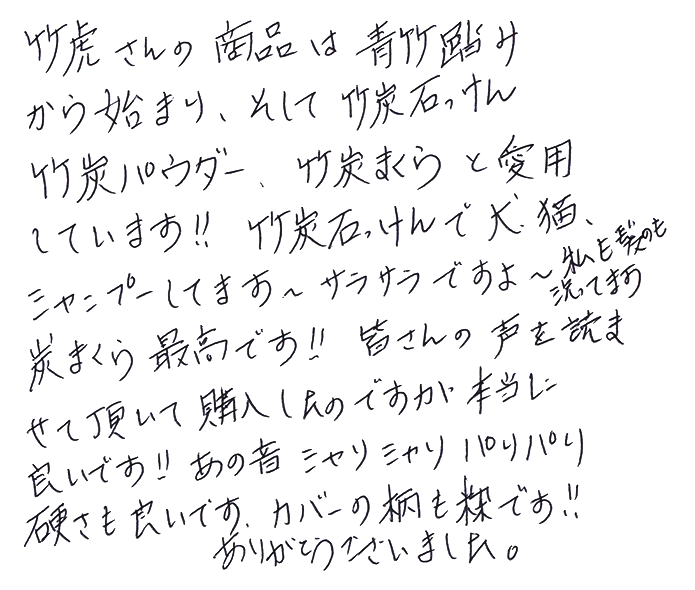 竹虎さんの商品は青竹踏み
から始まり、そして竹炭石っけん
竹炭パウダー、竹炭まくらと愛用
しています!! 竹炭石っけんで犬、猫、
シャンプーしてます〜サラサラですよ〜
私も髪のも
洗ってます
炭まくら最高です!! 皆さんの声を読ま
せて頂いて購入したのですが本当に
良いです!! あの音シャリシャリパリパリ
硬さも良いです、カバーの柄も粋です!!
ありがとうございました。